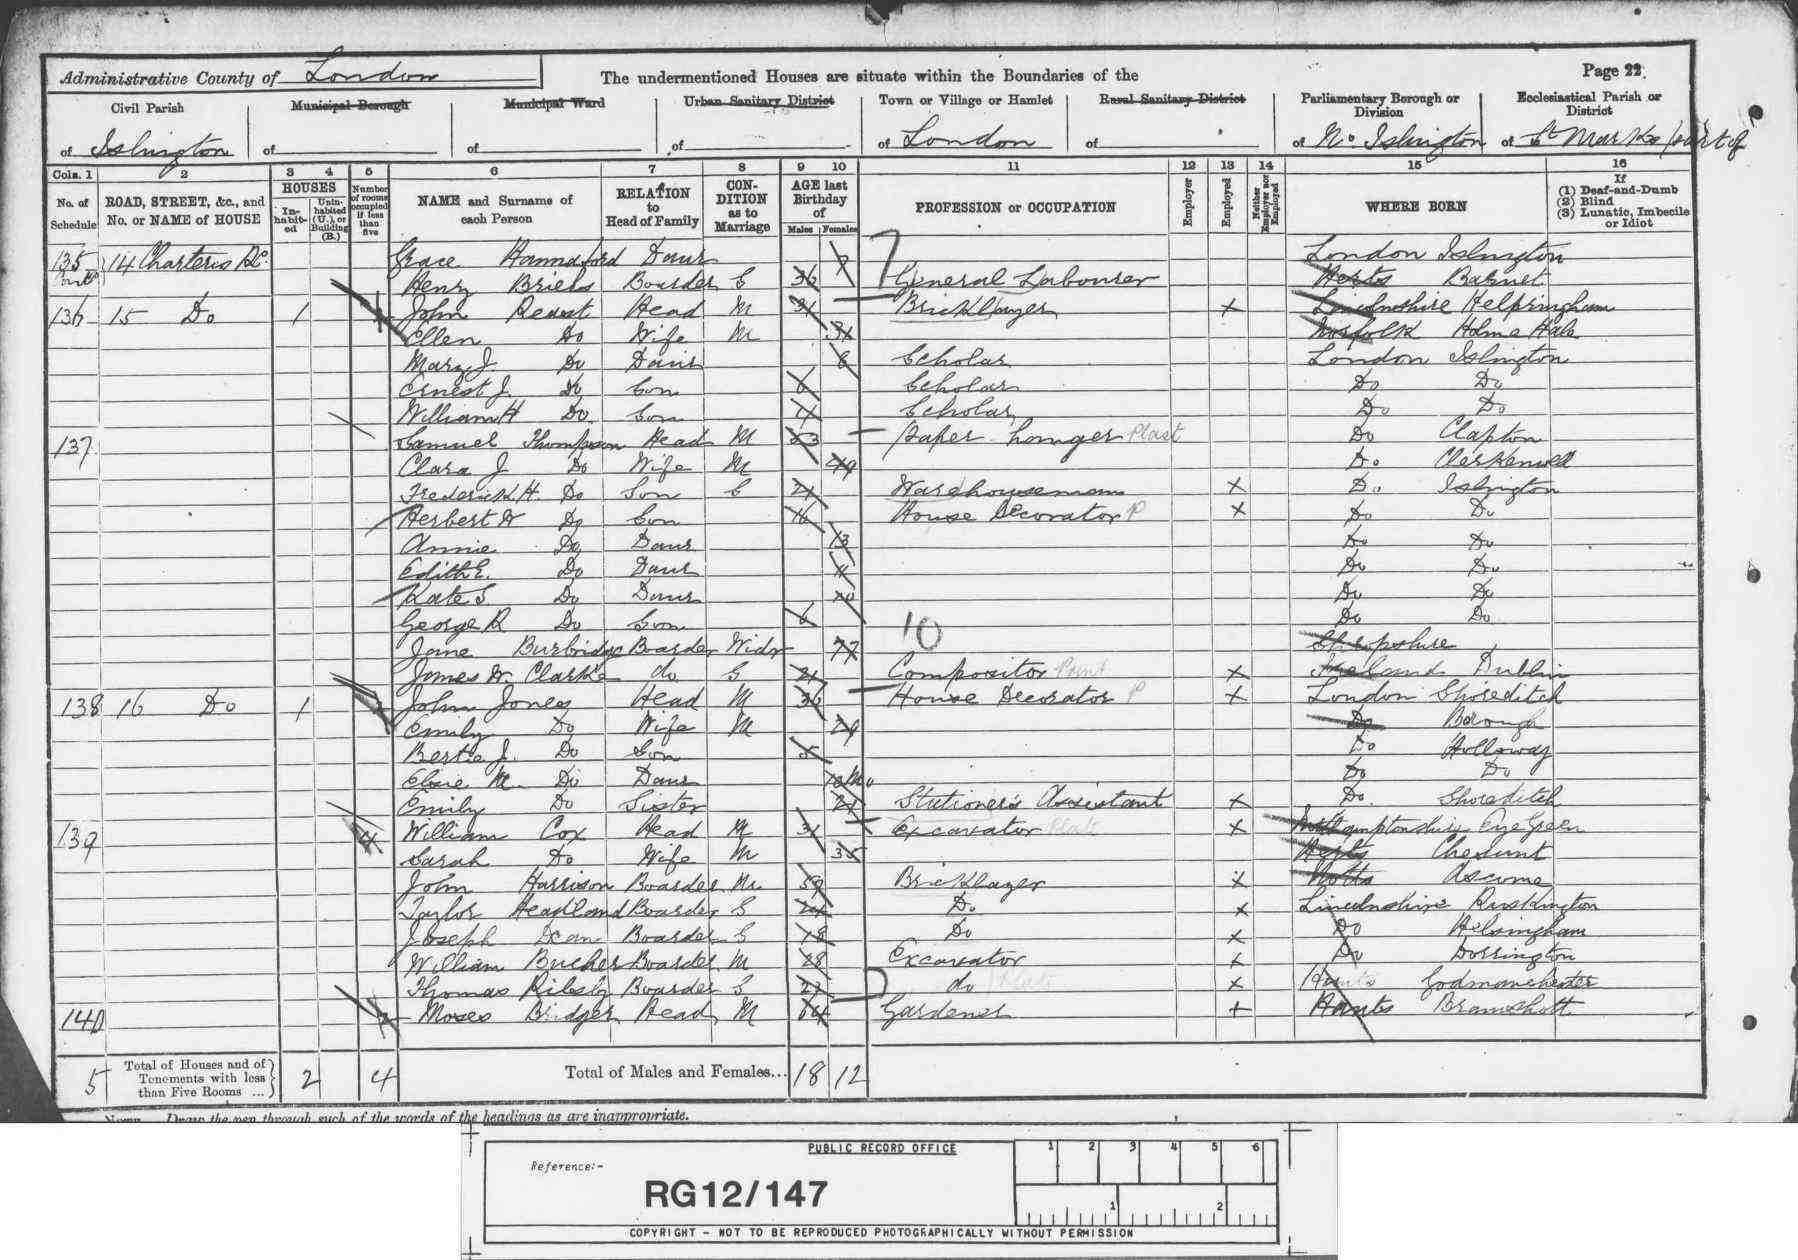 Administrative County of London
The undermentioned Houses are situate within the Boundaries of the
Page 22
Civil Parish Municipal Borough Municipal Ward Urban Sanitary District Town or Village or Hamlet Rural Sanitary District Parliamentary Borough or Division Ecclesiastical Parish or District
of Islington of of of of London of of No Islington of St Marks part of
Cols. 1 2 3 4 5 6 7 8 9 10 11 12 13 14 15 16
No. of Schedule ROAD, STREET, &c., and No. or NAME of HOUSE HOUSES Inhabited Uninhabited (U.), or Building (B.) Number of rooms occupied if less than five NAME and Surname of each Person RELATION to Head of Family CONDITION as to Marriage AGE last Birthday of Males Females PROFESSION or OCCUPATION Employer Employed Neither Employer nor Employed WHERE BORN If (1) Deaf-and-Dumb (2) Blind (3) Lunatic, Imbecile or Idiot
135 14 Charteris Rd Grace Daur 7 London Islington
Henry Boarder S 36 General Labourer Herts Barnet
136 15 Do 1 John Head M 31 Bricklayer X Lincolnshire Helpringham
Ellen Do Wife M 31 Norfolk Holme Hale
Mary J. Do Daur 8 Scholar London Islington
Ernest J. Do Son 6 Scholar Do Do
William H Do Son 4 Scholar Do Do
137 Samuel Thompson Head M 53 Paper-hanger Plast Do Clapton
Clara J Do Wife M 49 Do Clerkenwell
Frederick H. Do Son S 21 Warehouseman X Do Islington
Herbert W Do Son 16 House Decorator P X Do Do
Annie Do Daur 13 Do Do
Edith E. Do Daur 11 Do Do
Kate S Do Daur 10 Do Do
George R Do Son 6 10 Do Do
Jane Burbridge Boarder Widr 77 Shropshire
James W. Clarke do S 21 Compositor Print X Ireland Dublin
138 16 Do 1 John Jones Head M 36 House Decorator P X London Shoreditch
Emily Do Wife M 29 Do Borough
Bertie J. Do Son 5 Do Holloway
Elsie M. Do Daur 10 Mo Do Do
Emily Do Sister 21 Stationer's Assistant X Do Shoreditch
139 4 William Cox Head M 31 Excavator X Northamptonshire Eye Green
Sarah Do Wife M 35 Herts Chesunt
John Harrison Boarder Mr 59 Bricklayer X Notts
Taylor Headland Boarder S 24 Do X Lincolnshire Ruskington
Joseph Dean Boarder S 18 Do X Do Helsingham
William Bucher Boarder M 28 Excavator X Do Dorrington
Thomas Boarder S 21 do X Hunts Godmanchester
140 Moses Bridger Head M 64 Gardener X Hants Bramshott
5 Total of Houses and of Tenements with less than Five Rooms ... 2 4 Total of Males and Females... 18 12
NOTE. Draw the pen through such of the words of the headings as are inappropriate.
PUBLIC RECORD OFFICE
1 2 3 4 5 6
Reference:-
RG12/147
1 2
COPYRIGHT - NOT TO BE REPRODUCED PHOTOGRAPHICALLY WITHOUT PERMISSION